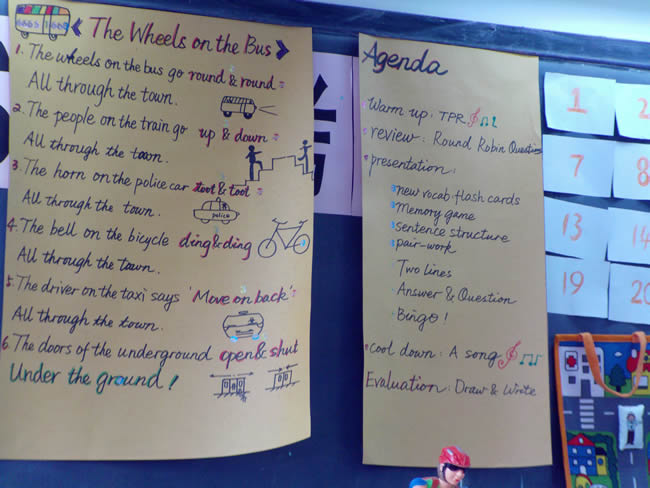 The Wheels on the Bus
1. The wheels on the bus go round & round
All through the town.
2. The people on the train go up & down
All through the town.
3. The horn on the police car toot & toot
All through the town.
police
4. The bell on the bicycle ding & ding
All through the town.
5. The driver on the taxi says 'Move on back'
All through the town.
6. The doors of the underground open & shut
Under the ground!
Agenda
Warm up: TPR
review: Round Robin Question
presentation:
new vocab flash cards
Memory game
sentence structure
pair-work
Two lines
Answer & Question
Bingo!
cool down: A song
Evaluation: Draw & Write
1
7 8
13 14
19 20